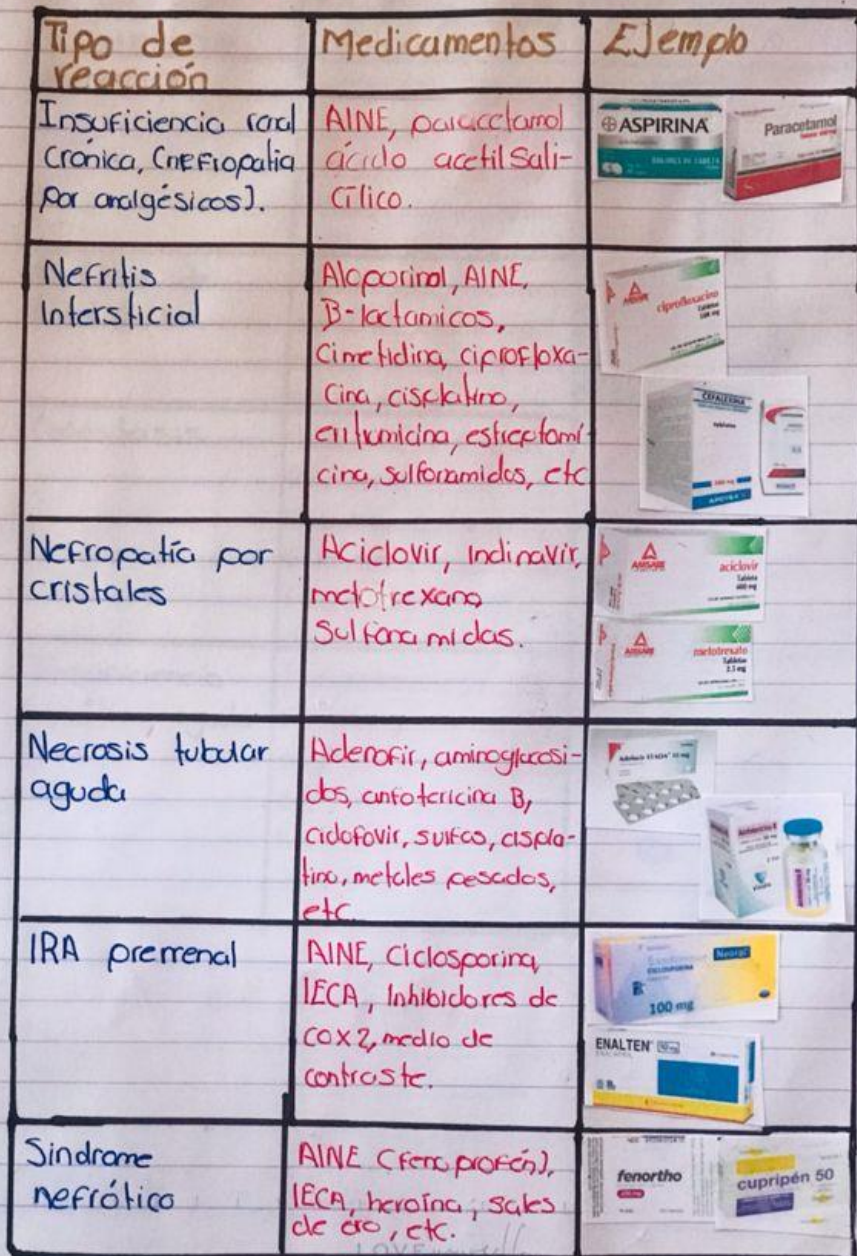 Tipo de reacción
Medicamentos
Ejemplo
Insuficiencia
Crónica, (nefropatia
por analgésicos).
AINE, paracetamol
ácido acetil Sali-
cílico.
ASPIRINA
Paracetamol
Nefritis
Intersticial
Aloporinol, AINE,
B-lactamicos,
Cimetidina, ciprofloxa-
cina, cisplatino,
estreptomi-
cina, sulfonamidas, etc
ciprofloxacino
Tabletas
CEFALEXINA
Nefropatía por
cristales
Aciclovir, Indinavir,
metotrexano,
Sulfonamidas.
AMSA
aciclovir
Tabletas
400 mg
metotrexato
Tabletas
2.5 mg
Necrosis tubular
aguda
Adenofir, aminoglucosi-
dos, anfotericina B,
cidofovir, cispla-
tino, metales pesados,
etc.
IRA prerrenal
AINE, Ciclosporina,
IECA, Inhibidores de
COX 2, medio de
contraste.
Neoral
100 mg
ENALTEN
Sindrome
nefrótico
AINE (fenoprofén),
IECA, heroína, sales
de oro, etc.
fenortho
cupripén 50